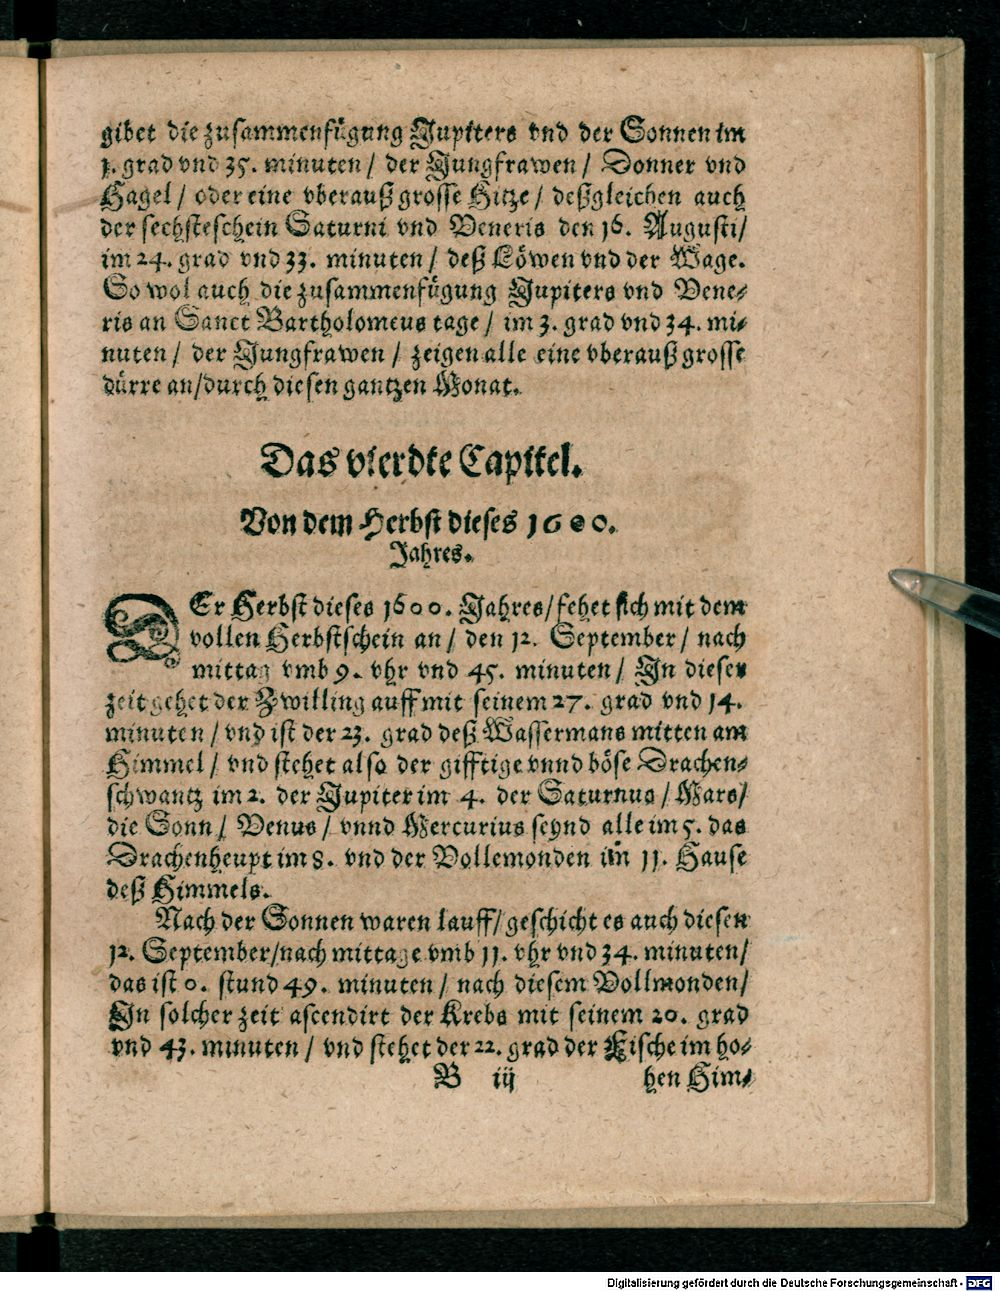 gibet die zusammenfügung Jupiters vnd der Sonnen im
1. grad vnd 35. minuten / der Jungfrawen / Donner vnd
Hagel / oder eine vberauß grosse Hitze / deßgleichen auch
der sechsteschein Saturni vnd Veneris den 16. Augusti /
im 24. grad vnd 33. minuten / deß Löwen vnd der Wage.
So wol auch die zusammenfügung Jupiters vnd Vene-
ris an Sanct Bartholomeus tage / im 3. grad vnd 34. mi-
nuten / der Jungfrawen / zeigen alle eine vberauß grosse
dürre an / durch diesen gantzen Monat.
Das vierdte Capitel.
Von dem Herbst dieses 1600.
Jahres.
DEr Herbst dieses 1600. Jahres / fehet sich mit dem
vollen Herbstschein an / den 12. September / nach
mittag vmb 9. vhr vnd 45. minuten / In dieser
zeit gehet der Zwilling auff mit seinem 27. grad vnd 14.
minuten / vnd ist der 23. grad deß Wassermans mitten am
Himmel / vnd stehet also der gifftige vnnd böse Drachen-
schwantz im 2. der Jupiter im 4. der Saturnus / Mars /
die Sonn / Venus / vnnd Mercurius seynd alle im 5. das
Drachenheupt im 8. vnd der Vollemonden im 11. Hause
deß Himmels.
Nach der Sonnen waren lauff / geschicht es auch diesen
12. September / nach mittage vmb 11. vhr vnd 34. minuten /
das ist 0. stund 49. minuten / nach diesem Vollmonden /
In solcher zeit ascendirt der Krebs mit seinem 20. grad
vnd 43. minuten / vnd stehet der 22. grad der Fische im ho-
B iij hen Him-
Digitalisierung gefördert durch die Deutsche Forschungsgemeinschaft - DFG